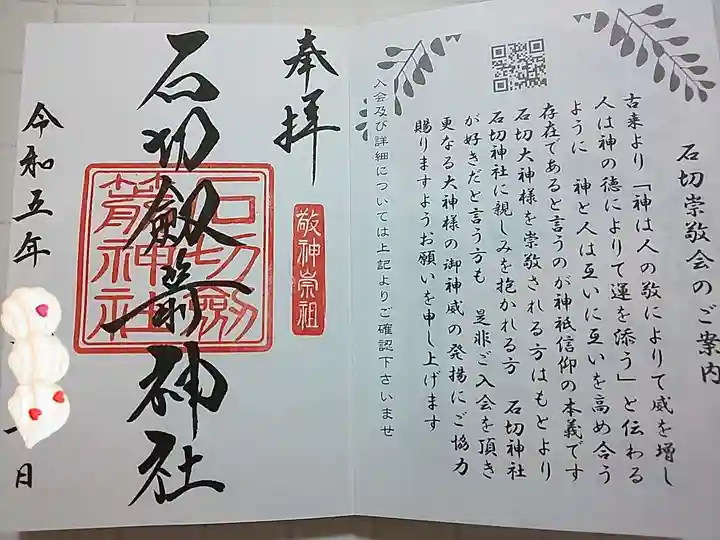 石切崇敬会のご案内
古来より「神は人の敬によりて威を増し
人は神の徳によりて運を添う」と伝わる
ように 神と人は互いに互いを高め合う
存在であると言うのが神祇信仰の本義です
石切大神様を崇敬される方はもとより
石切神社に親しみを抱かれる方 石切神社
が好きだと言う方も 是非ご入会を頂き
更なる大神様の御神威の発揚にご協力
賜りますようお願いを申し上げます
入会及び詳細については上記よりご確認下さいませ
奉拝
敬神崇祖
石切劔箭神社
石切劔
箭神社
令和五年
日